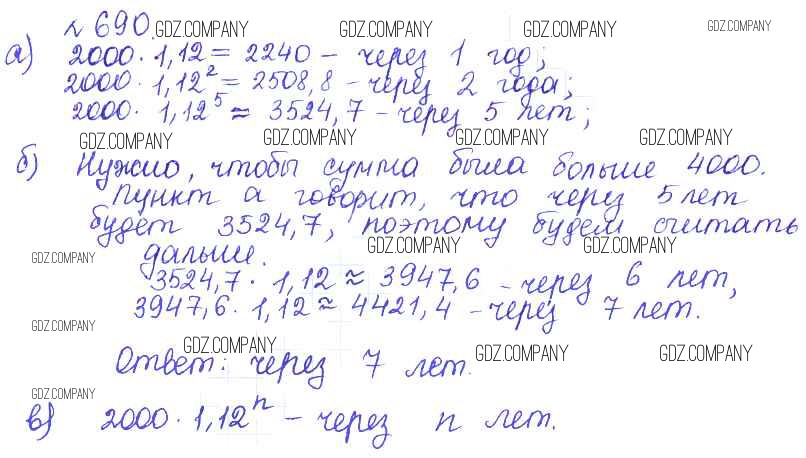 № 690. GDZ.COMPANY GDZ.COMPANY GDZ.COMPANY GDZ.COMPANY
а) 2000 · 1,12 = 2240 – через 1 год;
2000 · 1,12² = 2508,8 – через 2 года;
2000 · 1,12⁵ ≈ 3524,7 – через 5 лет;
GDZ.COMPANY GDZ.COMPANY GDZ.COMPANY GDZ.COMPANY
б) Нужно, чтобы сумма была больше 4000.
Пункт а говорит, что через 5 лет
будет 3524,7, поэтому будем считать
GDZ.COMPANY GDZ.COMPANY GDZ.COMPANY
дальше.
3524,7 · 1,12 ≈ 3947,6 – через 6 лет,
3947,6 · 1,12 ≈ 4421,4 – через 7 лет.
GDZ.COMPANY
GDZ.COMPANY GDZ.COMPANY GDZ.COMPANY
Ответ: через 7 лет.
GDZ.COMPANY
в) 2000 · 1,12ⁿ – через n лет.